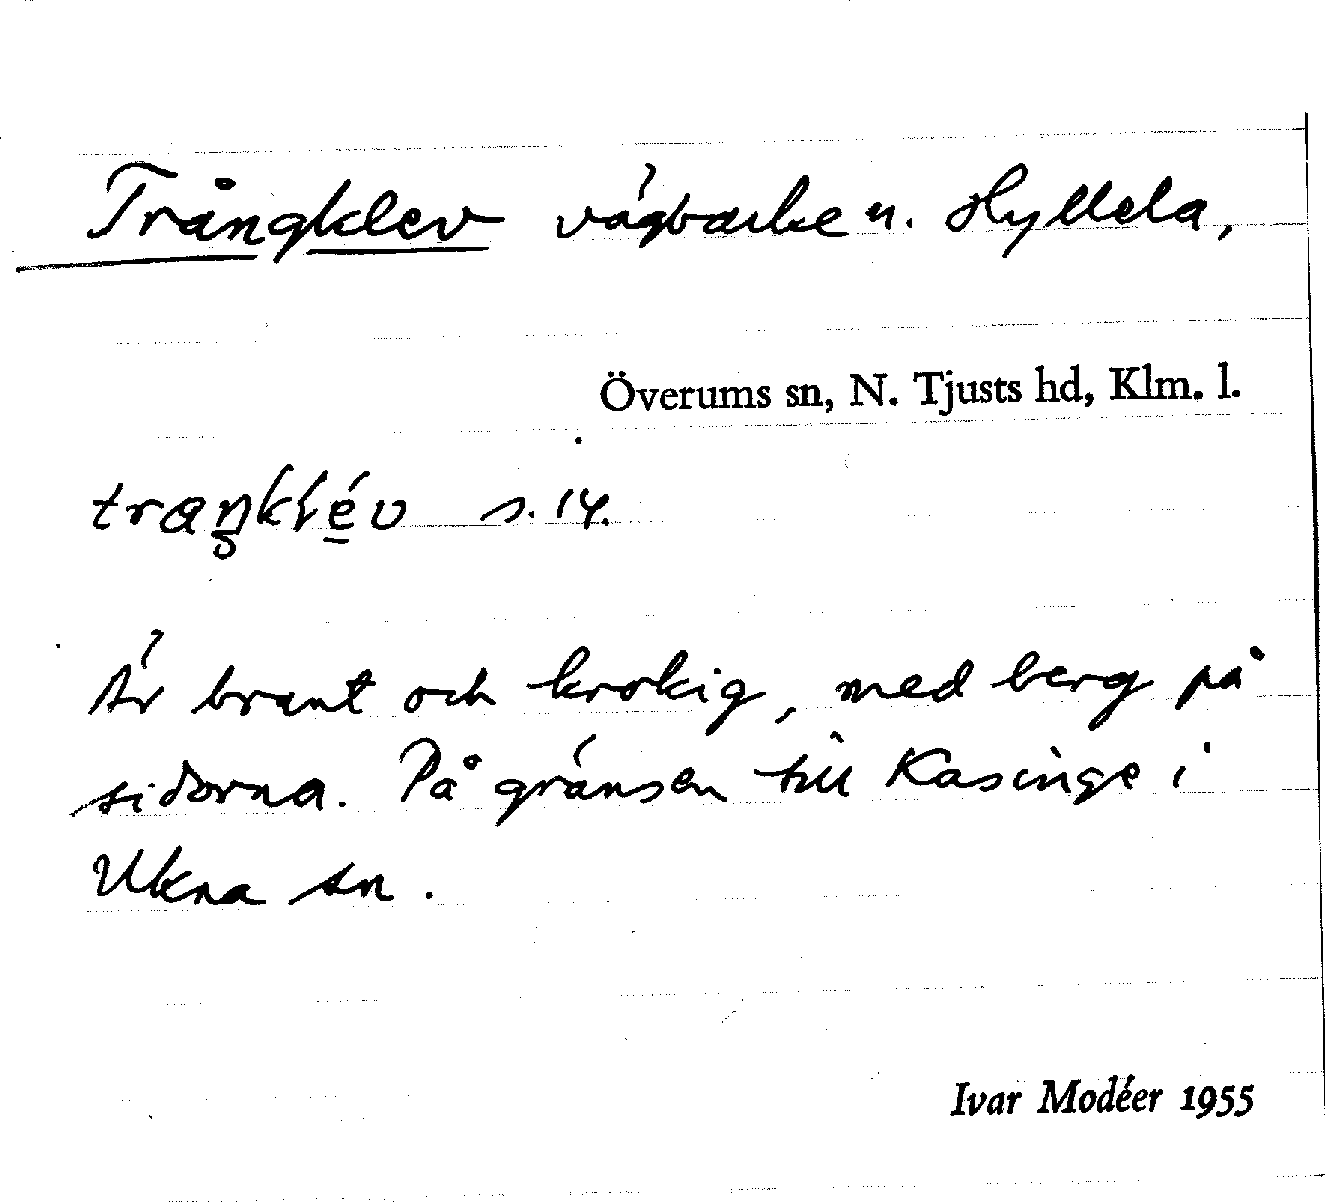 Trångklev vägbacke n. Hyllela,
Överums sn, N. Tjusts hd, Klm. l.
træŋklév s. 14.
Är brant och krokig, med berg på
sidorna. På gränsen till Kasinge i
Ukna sn.
Ivar Modéer 1955